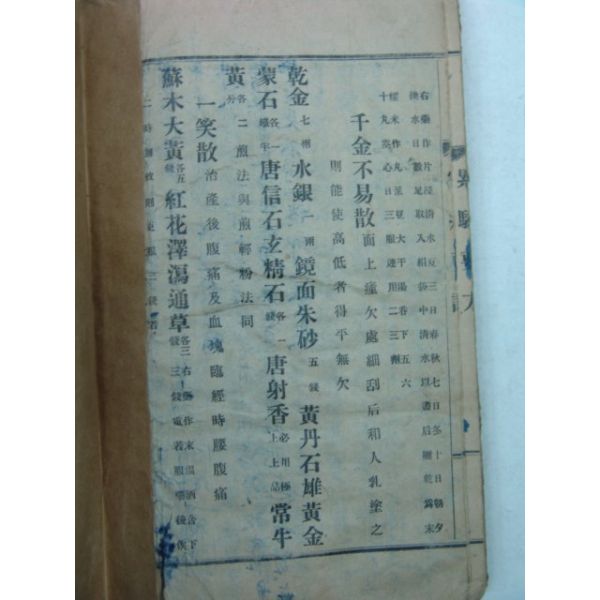 右藥作片浸清水夏三日春秋七日冬十日朝夕
換水日數足取入絹俗中清水以盡后曬乾爲末
糯米作丸菉豆大干湯吞下五六
十丸空心日三服連用二三劑
千金不易散 面上瘇欠處細刮后和人乳塗之
則能使高低者得平無欠
乾金 七兩 水銀 一兩 鏡面朱砂 五錢 黃丹石雄黃金
蒙石 各一錢半 唐信石玄精石 各一錢 唐射香 必用極上上品 常牛
黃 各二分 煎法與煎輕粉法同
一笑散 治產後腹痛及血塊臨經時腰腹痛
蘇木大黃 各五錢 紅花澤瀉通草 各三錢 右作末溫酒吞下
三錢
二時